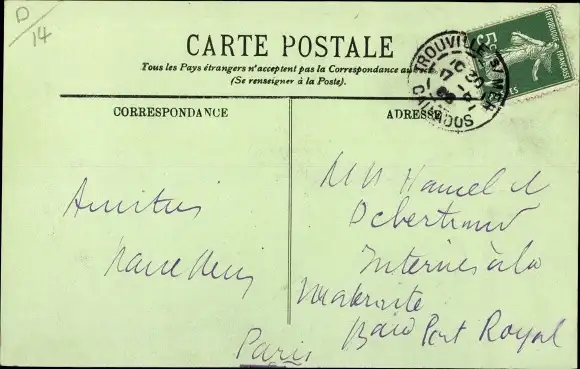 D
14
CARTE POSTALE
Tous les Pays étrangers n'acceptent pas la Correspondance au
(Se renseigner à la Poste).
CORRESPONDANCE
ADRESSE
REPUBLIQUE FRANÇAISE
5
TROUVILLE S/ MER
CALVADOS
Amitiés
MM Hamel et
Debertrand
Internes à la
Maternité
Port Royal
Paris